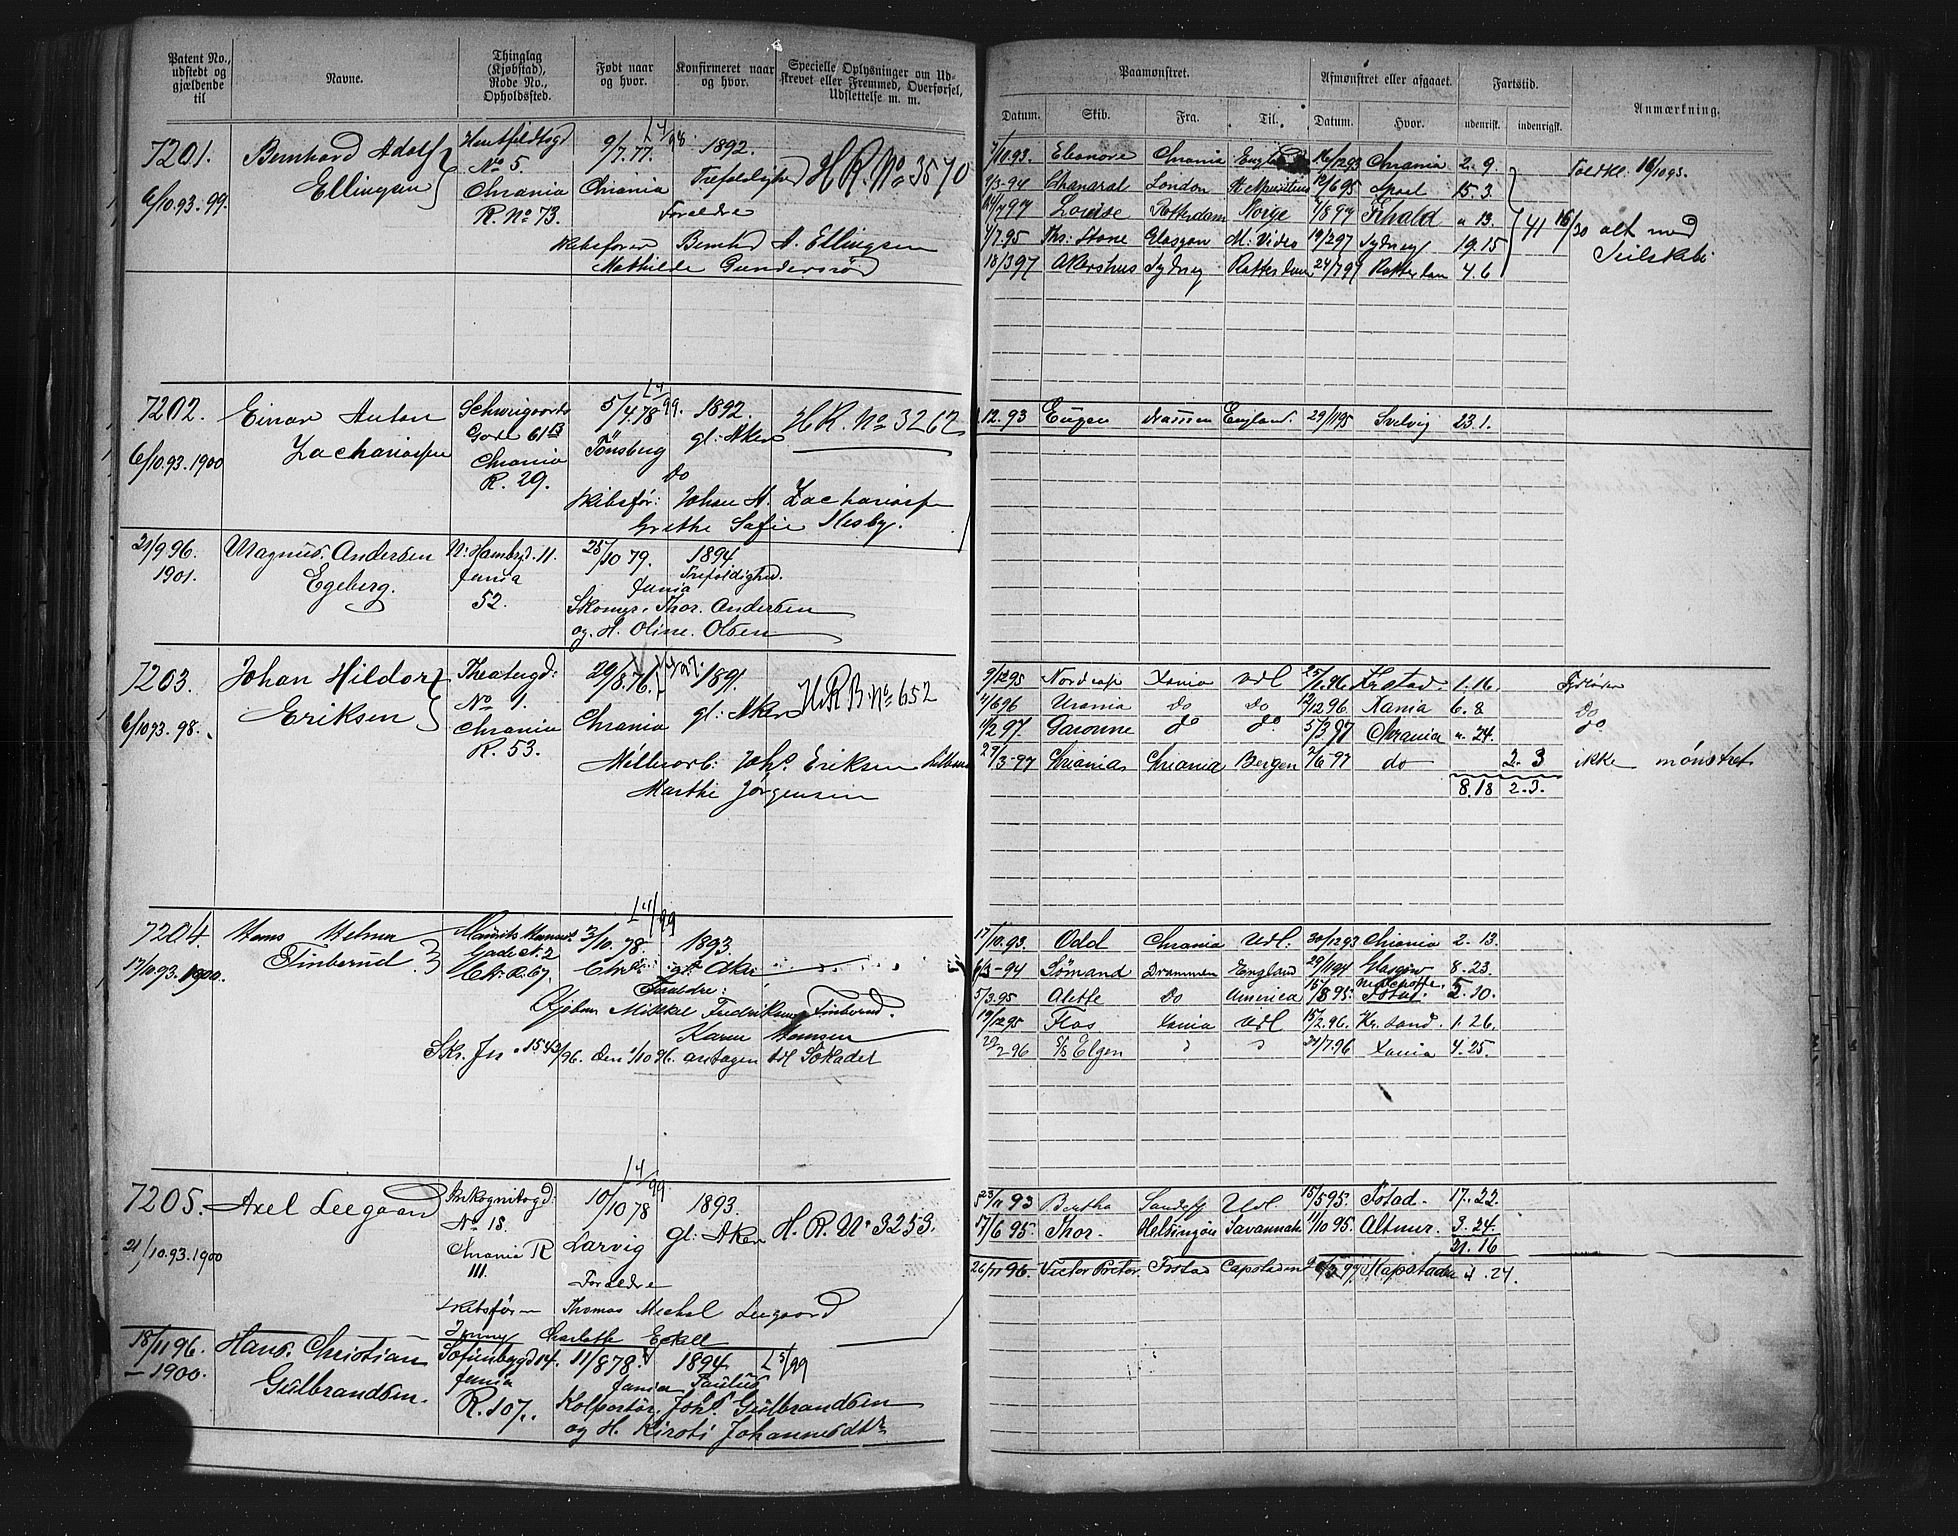 Patent No., udstedt og gjældende til
Navne.
Thinglag (Kjøbstad), Rode No., Opholdssted.
Født naar og hvor.
Konfirmeret naar og hvor.
Specielle Oplysninger om Udskrevet eller Fremmed, Overførsel, Udslettelse m. m.
Paamønstret.
Afmønstret eller afgaaet.
Fartstid.
Anmærkning.
Datum.
Skib.
Fra.
Til.
Datum.
Hvor.
udenrigsk.
indenrigsk.
7201.
6/10.93.99.
Bernhard Adolf
Ellingsen
No 5.
Chrania
R. No 73.
9/7.77.
Chrania
L 4/98
1892.
Trefoldighed
H.R. No 3570
Foraldre
Skibsfører Bernhd A. Ellingsen
Mathilde Gundersrød
/10.93. Eleonore Chrania England 16/12 93 Chrania 2. 9
/3-94 Chanaral London 15. 3
/7 97 Louise Rotterdam Norge /8 97 Frhald " 13.
/7.95 Ths. Stone Glasgow M. Video 19/2 97 Sydney 19. 15
18/3 97 Akershus Sydney Rotterdam 24/7 97 Rotterdam 4. 6
41 16/30 alt med
Seilskib.
7202.
6/10.93.1900
Einar Anton
Zachariassen
Schweigaards
Gade 61 B
Chrania
R. 29.
5/4 78
Tönsberg
L 4/99.
1892.
gl: Aker
H.R. No 3262
Do
Skibsfør: Johan A. Zachariassen
Grethe Sofie Nesby.
/12. 93 Eugen Drammen England. 29/11 95 Svelvig 23. 1.
21/9 96.
1901.
Magnus. Andersen
Egeberg.
52.
28/10 79.
1894
Trefoldighed.
Skomgr. Thor. Andersen
og. H. Oline. Olsen
7203.
6/10 93. 98.
Johan Hildor
Eriksen
Theatergd:
No 1.
Chrania
R. 53.
29/8.76.
Chrania
1891.
gl: Aker
H.R.B. No 652
Möllerarb: Johs. Eriksen
Marthe Jørgensen
9/12 95 Nordcap Xania Udl 25/1.96 Krstad. 1. 16.
4/6 96 Urania do do 12/12 96. Xania 6. 8 do
11/2 97. Garonne do do. 5/3 97 Chrania ". 24. do
27/3-97 Chriania Chriania Bergen 2/6 97 do 2. 3 ikke mønstret
8. 18 2. 3.
7204.
17/10 93. 1900.
Hans Helmer
Finberud
Gade N. 2
Chr. R. 67.
3/10. 78
L 4/99
1893
gl. Aker
Foraldre:
Mikkel Fredriksen Finberud.
Karen Hansen
Skr. Jn. 1543/96. den 1/10 96. antagen til Søkadet
17/10.93. Odd Chrania Udl. 30/12 93 Chriania 2. 13.
6/3-94 Sømand Drammen England 29/11 94 Glasgow 8. 23.
5/3.95 Alette Do America 15/8 95. 5. 10.
19/12 95 Fros Xania Udl 15/2. 96. Kr. sand. 1. 26.
29/2 96 S/S Elgen " " 24/7 96 Xania 4. 25.
7205.
21/10.93.1900
Axel Leegaard
Inkognitogd:
No 18.
Chrania R
111.
10/10 78
Larvig
L 4/99
1893.
gl: Aker
H. R. No 3253.
Foraldre
Skibsføren Thomas Michal Leegaard
Jenny Charlotte Eckell
23/11 93 Bertha Sandefj Udl. 15/5 95. Fstad. 17. 22.
17/6 95. Thor. Helsingör Savannah 11/10 95. Altmer. 3. 24.
21. 16
26/11 96. Victor Fstad Capstaden Kapstaden 24.
18/11 96.
-1900.
Hans. Christian
Gulbrandsen.
Sofienbergd 14.
R. 107.
11/8 78.
1894
Paulus
L 5/99
Kolportør. Johs. Gulbrandsen
og H. Kirsti Johannesdtr